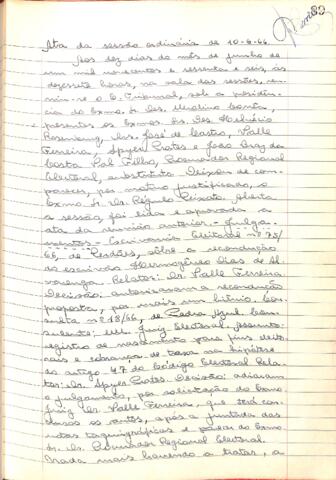 Ata da sessão ordinária de 10-6-66
Aos dez dias do mês de junho de
um mil novecentos e sessenta e seis, às
dezessete horas, na sala das sessões, reu-
niu-se o E. Tribunal, sob a presidên-
cia do Exmo. Sr. Des.
presentes os Exmos. Srs. Des.
Drs. José de Castro, Valle
Ferreira, Spyer Prates e João Bray da
Costa Val Filho, Procurador Regional
Eleitoral, substituto. Deixou de com-
parecer, por motivo justificado, o
Exmo. Sr. Dr. Régulo Peixoto. Aberta
a sessão, foi lida e aprovada a
ata da reunião anterior. - Julga-
mentos - Escrivania Eleitoral nº 75/
66, de Perdões, sôbre a recondução
do escrivão Hermógenes Dias de Al-
varenga. Relator: Dr. Valle Ferreira.
Decisão: autorizaram a recondução
proposta, por mais um biênio. Con-
sulta nº 18/66, de Pedra Azul. Con-
sulente: MM. Juiz Eleitoral. Assunto:
registro de nascimento para fins eleito-
rais e cobrança de taxa na hipótese
do artigo 47 do Código Eleitoral. Rela-
tor: Dr. Spyer Prates. Decisão: adiaram
o julgamento, por solicitação do Exmo.
Juiz Dr. Valle Ferreira, que terá con-
clusos os autos, após a juntada das
notas taquigráficas e parecer do Exmo.
Sr. Dr. Procurador Regional Eleitoral.
Nada mais havendo a tratar, a